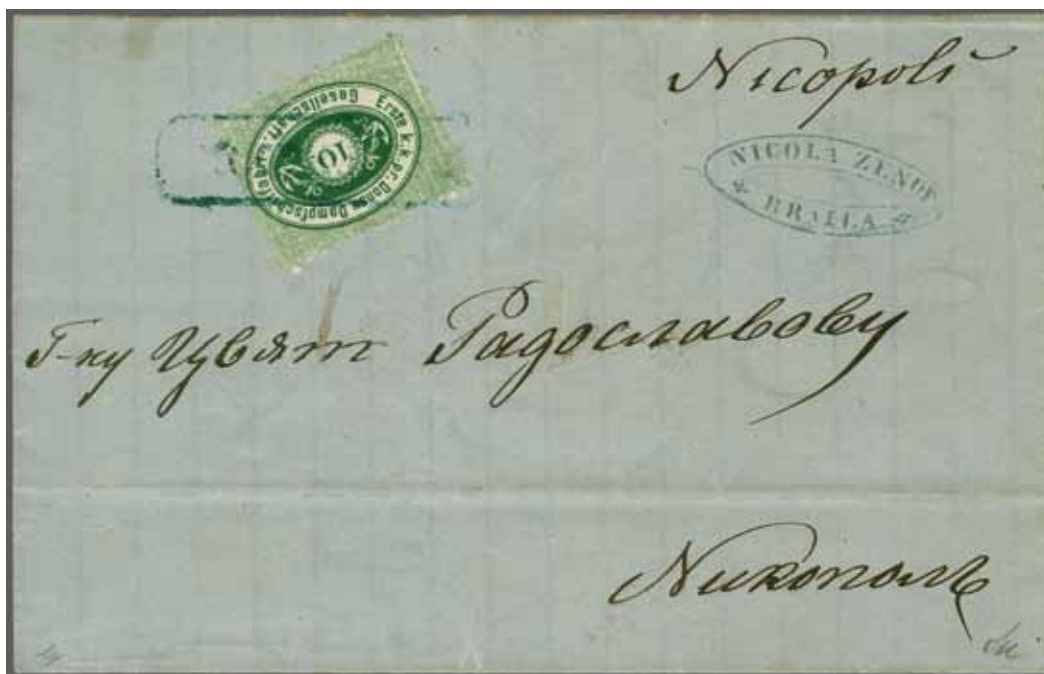 Nicopoli
Erste k.k.pr. Donau Dampfschiffahrt Gesellschaft.
10
NICOLA ZENOF
BRAILA
Г-ну Цвят Радославову
Никополъ